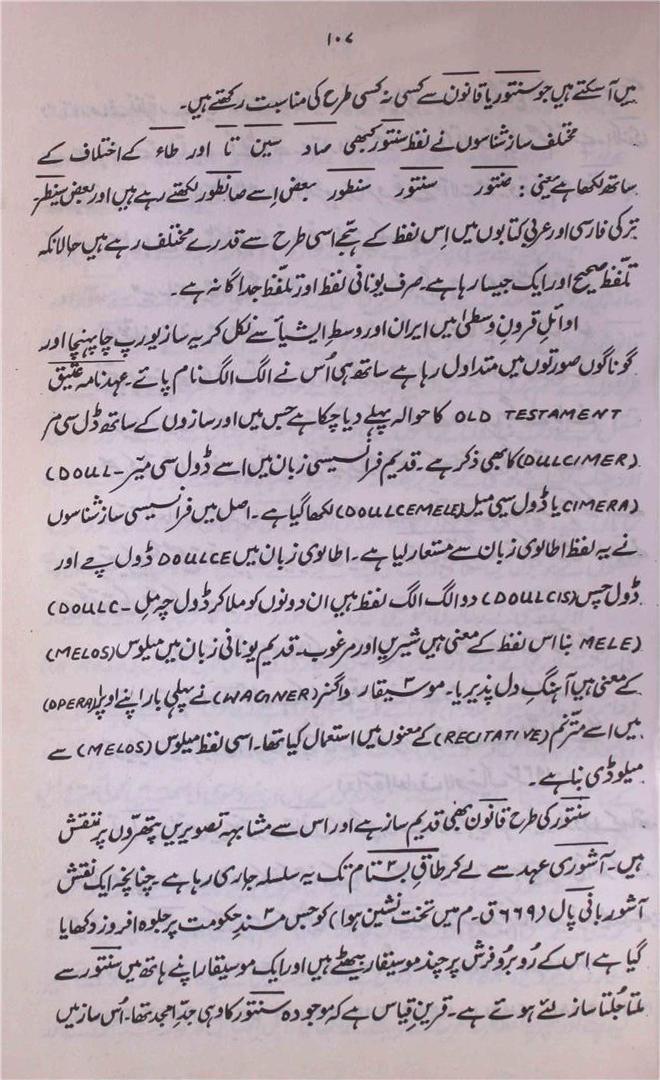 ۱۰۷
میں آ سکتے ہیں جو سنتور یا قانون سے کسی نہ کسی طرح کی مناسبت رکھتے ہیں۔
مختلف ساز شناسوں نے لفظ سنتور کبھی صاد سین تا اور طاء کے اختلاف کے
ساتھ لکھا ہے یعنی : صنتور سنتور سنطور بعض اِسے صانطور لکھتے رہے ہیں اور بعض سیطر۔
ترکی فارسی اور عربی کتابوں میں اِس لفظ کے ہجّے اسی طرح سے قدرے مختلف رہے ہیں حالانکہ
تلفّظ صحیح اور ایک جیسا رہا ہے۔ صرف یونانی لفظ اور تلفّظ جداگانہ ہے۔
اوائلِ قرونِ وسطیٰ میں ایران اور وسطِ ایشیأ سے نکل کر یہ ساز یورپ جا پہنچا اور
گوناگوں صورتوں میں متداول رہا ہے ساتھ ہی اُس نے الگ الگ نام پائے۔ عہد نامہ عتیق
OLD TESTAMENT کا حوالہ پہلے دیا جا چکا ہے جس میں اور سازوں کے ساتھ ڈل سی مر
(DULCIMER) کا بھی ذکر ہے۔ قدیم فرانسیسی زبان میں اسے ڈول سی میّر (DOUL-
CIMERA) یا ڈول سیی میل (DOULCEMELE) لکھا گیا ہے۔ اصل میں فرانسیسی ساز شناسوں
نے یہ لفظ اطالوی زبان سے مستعار لیا ہے۔ اطالوی زبان میں DOULCE ڈول چے اور
ڈول چِس (DOULCIS) دو الگ الگ لفظ ہیں ان دونوں کو ملا کر ڈول چہ مِلِ (DOULC-
MELE) بنا اس لفظ کے معنی ہیں شیریں اور مرغوب۔ قدیم یونانی زبان میں میلوس (MELOS)
کے معنی ہیں آہنگِ دل پذیر یا۔ موسیقار واگنر (WAGNER) نے پہلی بار اپنے اوپرا (OPERA)
میں اسے مترنّم (RECITATIVE) کے معنوں میں استعمال کیا تھا۔ اسی لفظ میلوس (MELOS) سے
میلوڈی بنا ہے۔
سنتور کی طرح قانون بھی قدیم ساز ہے اور اس سے مشابہہ تصویریں پتھروں پر منقش
ہیں۔ آشوری عہد سے لے کر طاقِ بستام تک یہ سلسلہ جاری رہا ہے چنانچہ ایک نقش
آشور بانی پال (۶۶۹ ق۔م میں تخت نشین ہوا) کو جس مسندِ حکومت پر جلوہ افروز دکھایا
گیا ہے اس کے رُوبرُو فرش پر چند موسیقار بیٹھے ہیں اور ایک موسیقار اپنے ہاتھ میں سنتور سے
ملتا جُلتا ساز لئے ہوئے ہے۔ قرینِ قیاس ہے کہ موجودہ سنتور کا وہی جدِّ امجد تھا۔ اُس ساز میں